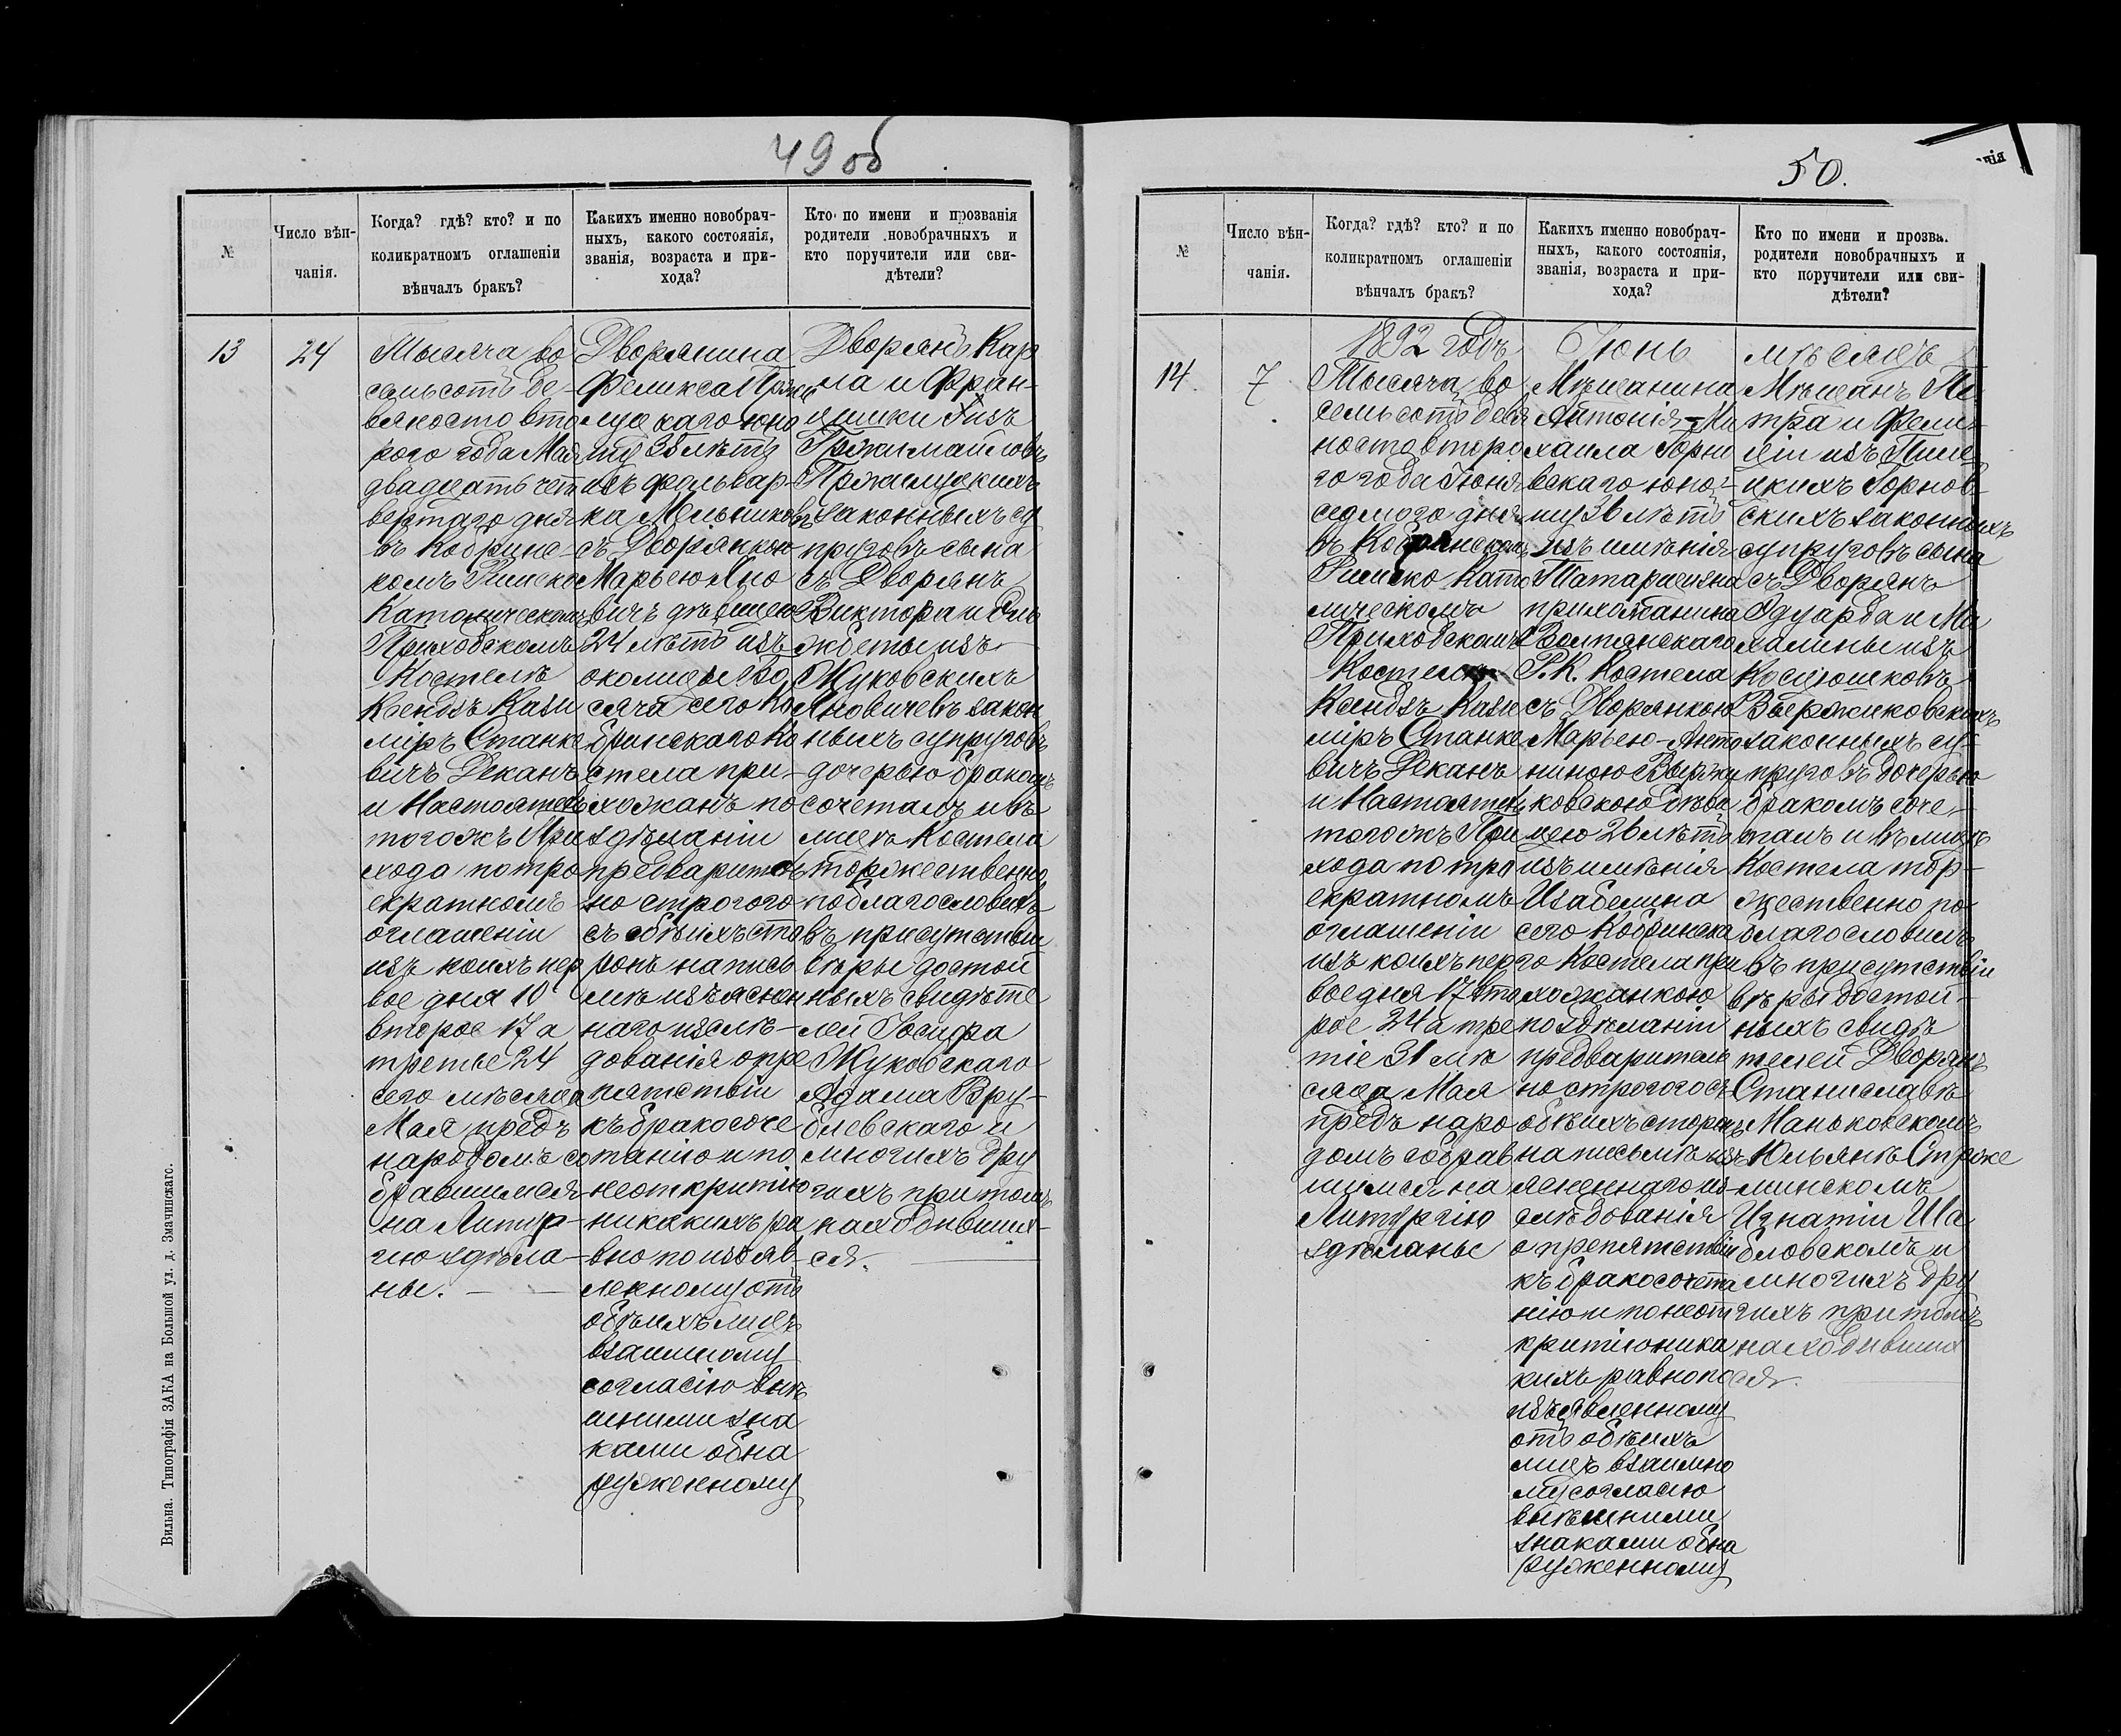 49 об
№
Число вѣн-
чанія.
Когда? гдѣ? кто? и по
коликратномъ оглашеніи
вѣнчалъ бракъ?
Какихъ именно новобрач-
ныхъ, какого состоянія,
званія, возраста и при-
хода?
Кто по имени и прозванія
родители новобрачныхъ и
кто поручители или сви-
дѣтели?
13
24
Тысяча во
семьсотъ де-
вяносто вто
рого года Мая
двадцать чет
вертаго дня
въ Кобринс-
комъ Римско
Католическомъ
Приходскомъ
Костелѣ
Ксендзъ Кази
міръ Станке
вичъ Деканъ
и Настоятель
тогожъ При
хода по тро
екратномъ
оглашеніи
изъ коихъ пер
вое дня 10
второе 17 а
третье 24
сего мѣсяца
Мая предъ
народомъ со
бравшимся
на Литур-
гію здѣла-
ны.
Дворянина
Феликса
юно
шу 38 лѣтъ
изъ фольвар-
ка Мельников
съ Дворянкою
Марьею Яно
вичъ дѣвицею
24 лѣтъ изъ
околицы
сяча сего Ко
бринскаго Ко
стела при-
хожанъ по
здѣланіи
предваритель
но строгого
съ обѣихъ сто
ронъ на пись
мѣ изъясне
наго изслѣ-
дованія о пре
пятствіи
къ бракосоче
танію и по
неоткрытію
никакихъ ра
вно по изъяв-
ленному отъ
обѣихъ лицъ
взаимному
согласію внѣ
шними зна
ками обна
руженному
Дворянъ Кар
ла и Фран-
цишки изъ

законныхъ су
пруговъ сына
съ Дворянъ
Виктора и Эль
жбеты изъ
Жуковскихъ
Яновичевъ закон
ныхъ супруговъ
дочерью бракомъ
сочеталъ и въ
лицѣ Костела
торжественно
поблагословилъ
въ присутствіи
вѣры достой
ныхъ свидѣте
лей Іосифа
Жуковскаго
Адама Вру-
блевскаго и
многихъ дру
гихъ притомъ
находивших-
ся.
Вильна. Типографія ЗАКА на Большой ул. д. Змачинскаго.
50.
нія
№
Число вѣн-
чанія.
Когда? гдѣ? кто? и по
коликратномъ оглашеніи
вѣнчалъ бракъ?
Какихъ именно новобрач-
ныхъ, какого состоянія,
званія, возраста и при-
хода?
Кто по имени и прозва.
родители новобрачныхъ и
кто поручители или сви-
дѣтели?
1892 годъ Іюнь мѣсяцъ
14.
7
Тысяча во
семьсотъ девя
носто второ
го года Іюня
седмого дня
въ Кобринскомъ
Римско Като
лическомъ
Приходскомъ
Костелѣ
Ксендзъ Кази
міръ Станке
вичъ Деканъ
и Настоятель
тогожъ При
хода по тро
екратномъ
оглашеніи
изъ коихъ пер
вое дня 17 вто
рое 24 а тре
тіе 31 мѣ
сяца Мая
предъ наро
домъ собрав
шимся на
Литургію
здѣланы
Мѣщанина
Антонія-Ми
хаила Горно
вскаго юно-
шу 36 лѣтъ
изъ имѣнія
прихожанина
Р.К. Костела
съ Дворянкою
Марьею-Анто
ниною Выржи
ковскою дѣви
цею 26 лѣтъ
изъ имѣнія
Изабелина
сего Кобринска
го Костела при
хожанкою
по здѣланіи
предваритель
но строгого съ
обѣихъ сторонъ
на письмѣ изъ
ясненнаго из-
слѣдованія
о препятствіи
къ бракосочета
нію и по неот
крытію ника
кихъ равно по
изъявленному
отъ обѣихъ
лицъ взаимно
му согласію
внѣшними
знаками обна
руженному
Мѣщанъ Пе
тра и Фели-
ціи изъ
Горнов-
скихъ законныхъ
супруговъ сына
съ Дворянъ
Эдуарда и Ми
халины изъ
Косцюшковъ
Выржиковскихъ
законныхъ су-
пруговъ дочерью
бракомъ соче-
талъ и въ лицѣ
Костела тор-
жественно по-
благословилъ
въ присутствіи
вѣры достой-
ныхъ свидѣ
телей Дворянъ
Станиславѣ
Маньковскомъ
Юльянѣ Стрже
минскомъ
Игнатіи Ша
бловскомъ и
многихъ дру
гихъ притомъ
находивших
ся.